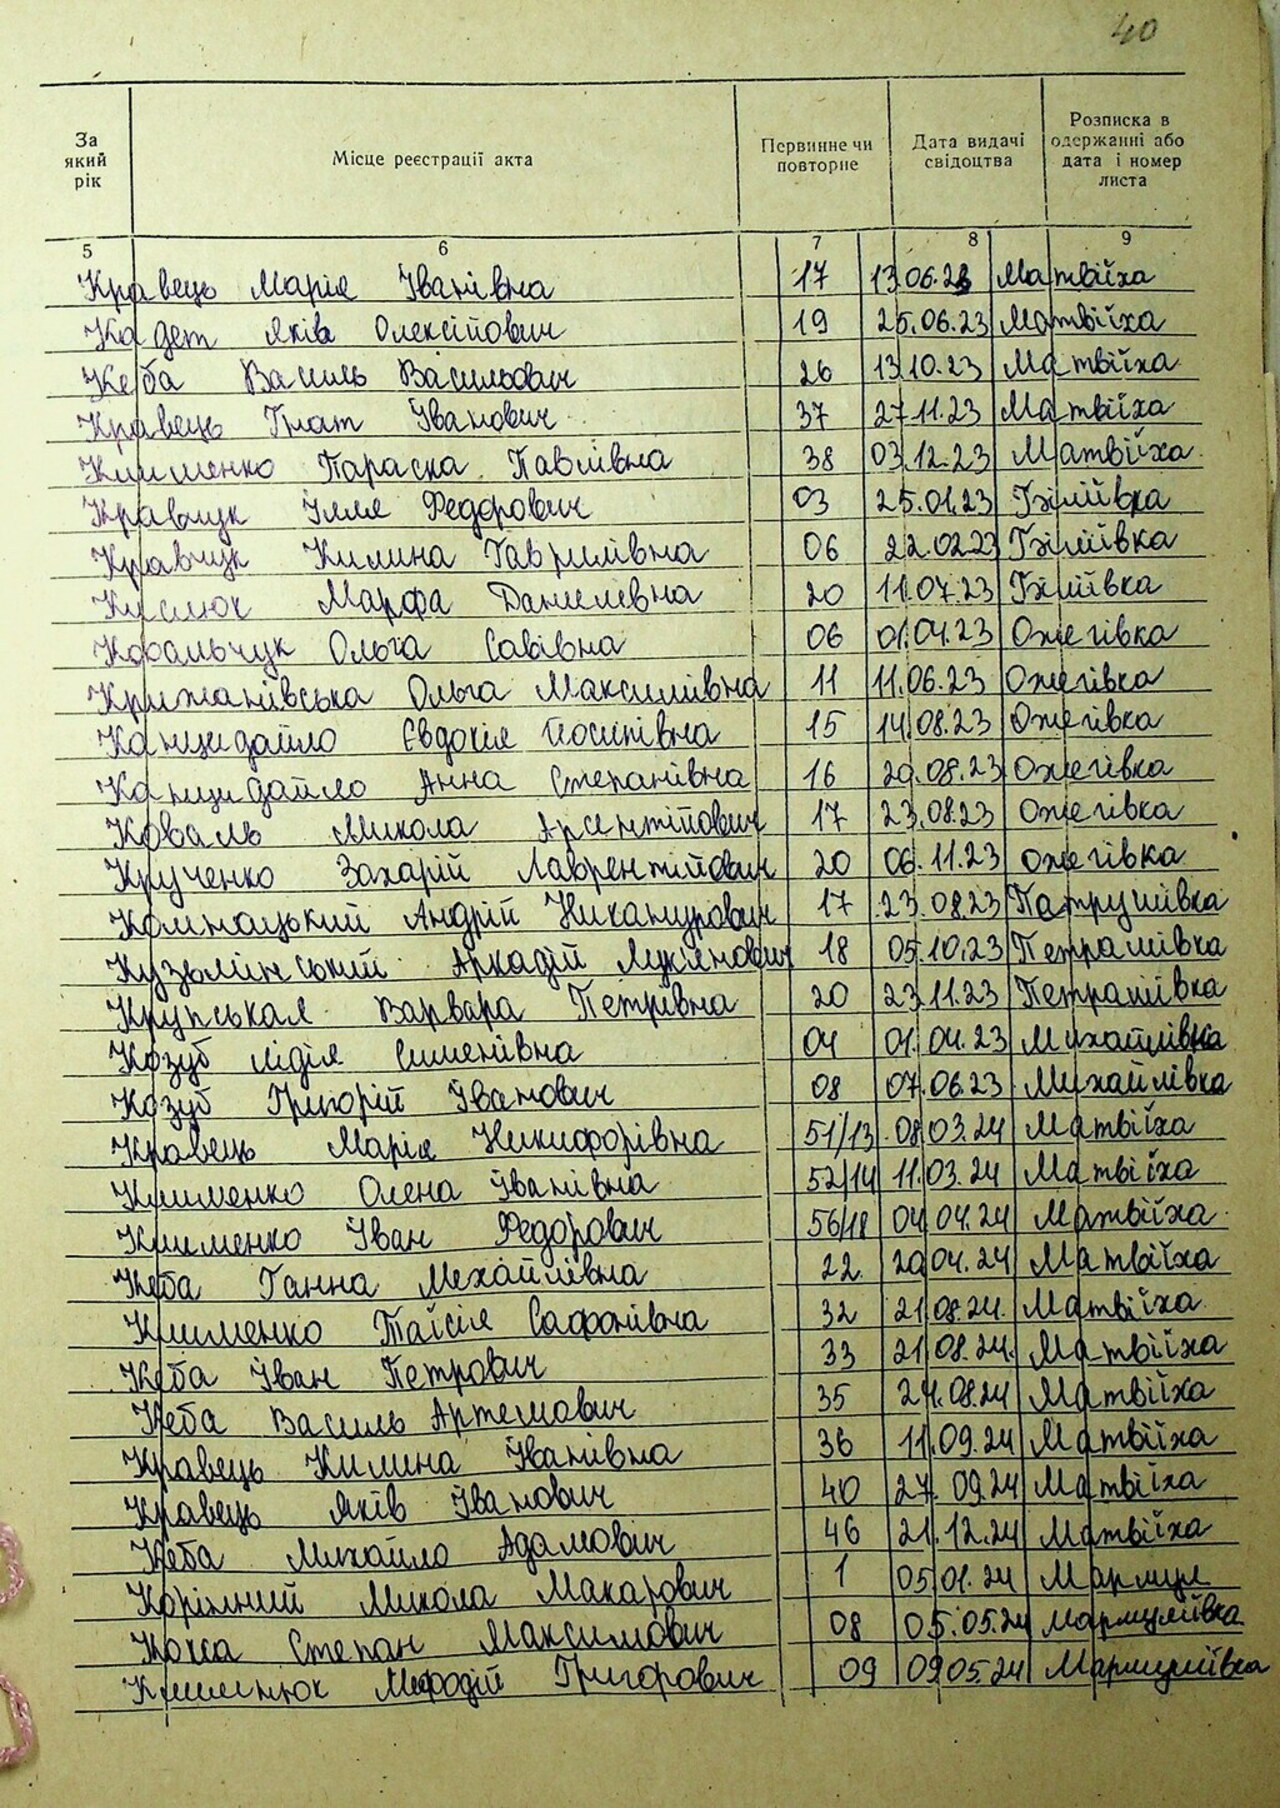 40
За який рік
Місце реєстрації акта
Первинне чи повторне
Дата видачі свідоцтва
Розписка в одержанні або дата і номер листа
5 6 7 8 9
Кравець Марія Іванівна 17 13.06.23 Матвіїха
Кадет Яків Олексійович 19 25.06.23 Матвіїха
Кеба Василь Васильович 26 13.10.23 Матвіїха
Кравець Гнат Іванович 37 27.11.23 Матвіїха
Клименко Параска Павлівна 38 03.12.23 Матвіїха
Кравчук Ілля Федорович 03 25.01.23
Кравчук Килина Гаврилівна 06 22.02.23
Кислюк Марфа Данилівна 20 11.07.23
Ковальчук Ольга Савівна 06 01.04.23 Ожегівка
Крижанівська Ольга Максимівна 11 11.06.23 Ожегівка
Євдокія Йосипівна 15 14.08.23 Ожегівка
Анна Степанівна 16 20.08.23 Ожегівка
Коваль Микола Арсентійович 17 23.08.23 Ожегівка
Крученко Захарій Лаврентійович 20 06.11.23 Ожегівка
Андрій Никанурович 17 23.08.23
Кузьмінський Аркадій Лукянович 18 05.10.23 Петрашівка
Крупськая Варвара Петрівна 20 23.11.23 Петрашівка
Козуб Лідія Сименівна 04 01.04.23 Михайлівка
Козуб Григорій Іванович 08 07.06.23 Михайлівка
Кравець Марія Никифорівна 51/13 08.03.24 Матвіїха
Клименко Олена Іванівна 52/14 11.03.24 Матвіїха
Клименко Іван Федорович 56/18 04.04.24 Матвіїха
Кеба Ганна Михайлівна 22 20.04.24 Матвіїха
Клименко Таїсія Сафонівна 32 21.08.24 Матвіїха
Кеба Іван Петрович 33 21.08.24 Матвіїха
Кеба Василь Артемович 35 24.08.24 Матвіїха
Кравець Килина Іванівна 36 11.09.24 Матвіїха
Кравець Яків Іванович 40 27.09.24 Матвіїха
Кеба Михайло Адамович 46 21.12.24 Матвіїха
Корімний Микола Макарович 1 05.01.24
Степан Максимович 08 05.05.24 Мармуліївка
Мефодій Григорович 09 09.05.24 Мармуліївка